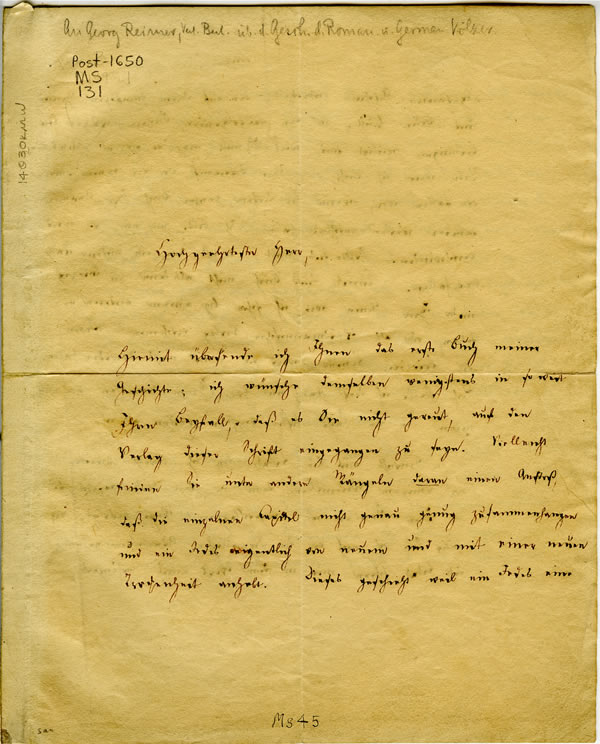 An Georg Reimer, Verl. Berl. üb. d. Gesch. d. Roman. u. German. Völker
Post-1650
MS
131
Hochgeehrtester Herr,
Hiemit übersende ich Ihnen das erste Buch meiner
Geschichte; ich wünsche demselben wenigstens in so weit
Ihren Beyfall, daß es Sie nicht gereut, auf den
Verlag dieser Schrift eingegangen zu seyn. Vielleicht
Sie unter andern Mängeln daran einen Anstoß,
daß die einzelnen Capitel nicht genau genung zusammenhangen
und ein Jedes eigentlich von neuem und mit einer neuen
anhebt. Dieses geschieht weil ein Jedes eine
Ms 45